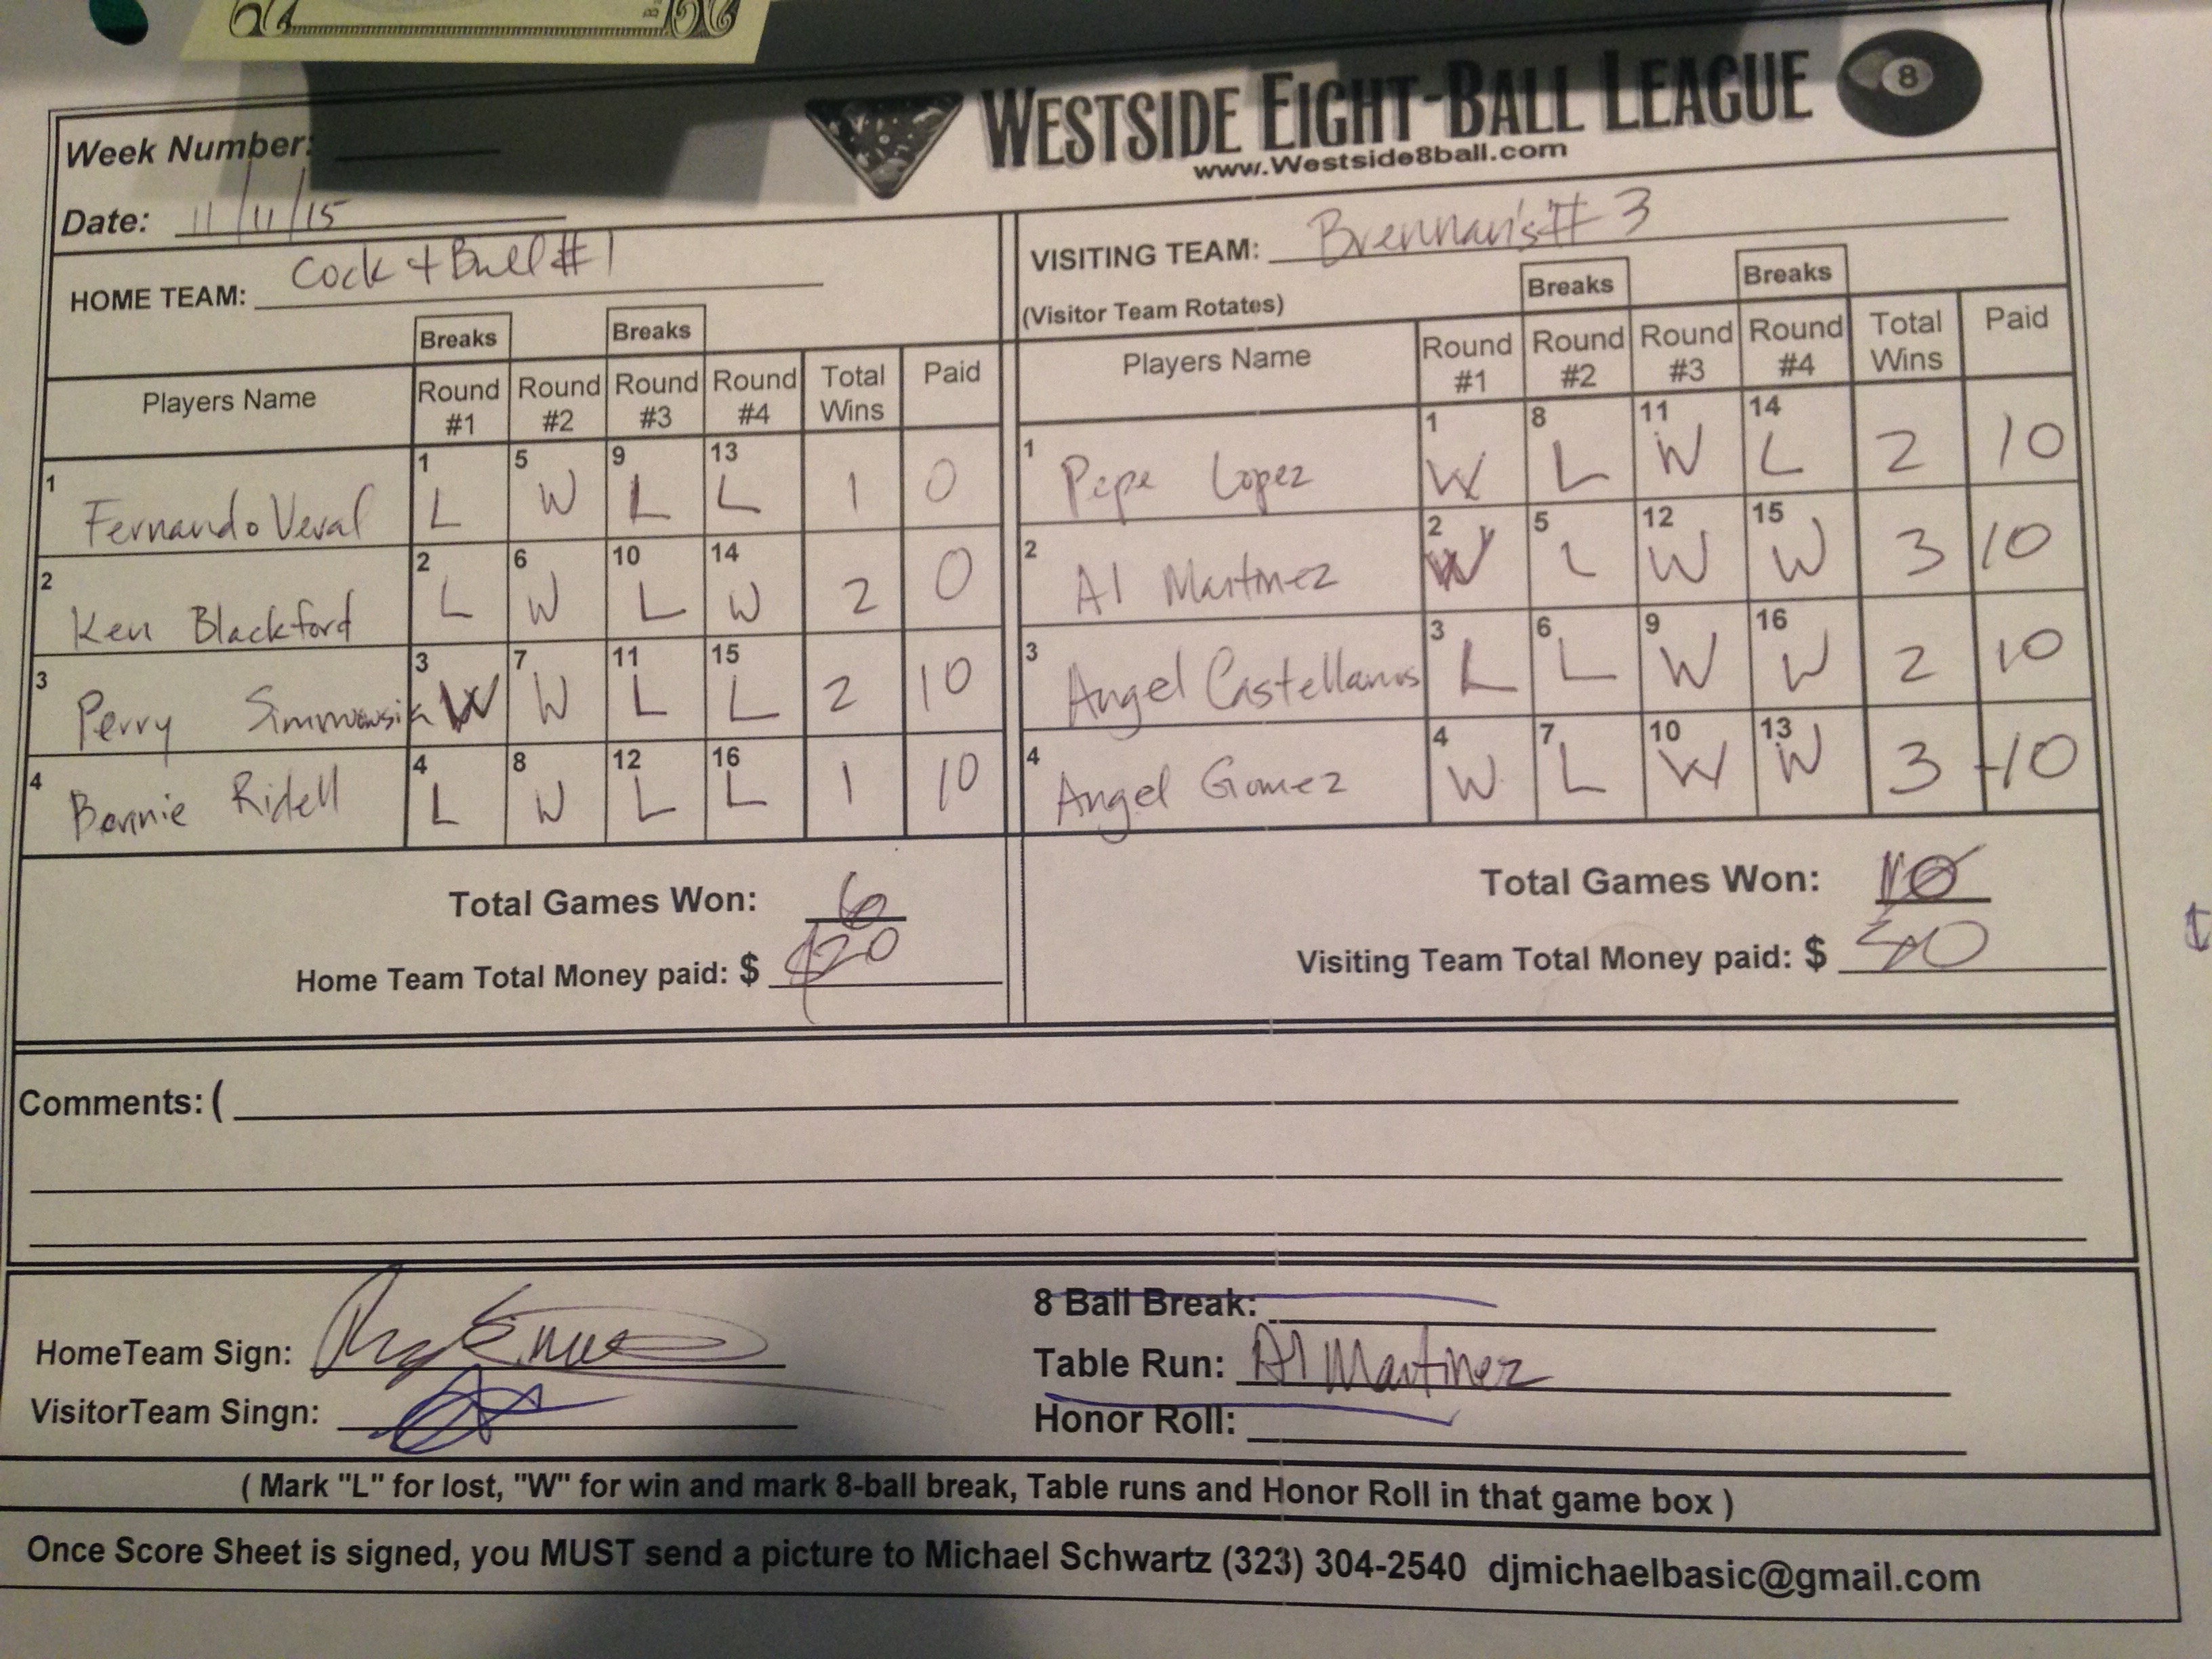 WESTSIDE EIGHT-BALL LEAGUE 8
www.Westside8ball.com
Week Number:
Date: 11/11/15
HOME TEAM: Cock + Bull #1
VISITING TEAM: Brennan's # 3
(Visitor Team Rotates)
Breaks Breaks
Players Name Round #1 Round #2 Round #3 Round #4 Total Wins Paid
1 Fernando Veval 1 L 5 W 9 L 13 L 1 0
2 Ken Blackford 2 L 6 W 10 L 14 W 2 0
3 Perry 3 W 7 W 11 L 15 L 2 10
4 Bonnie Ridell 4 L 8 W 12 L 16 L 1 10
Total Games Won: 6
Home Team Total Money paid: $ $20
Breaks Breaks
Players Name Round #1 Round #2 Round #3 Round #4 Total Wins Paid
1 Pepe Lopez 1 W 8 L 11 W 14 L 2 10
2 Al Martinez 2 W 5 L 12 W 15 W 3 10
3 Angel Castellanos 3 L 6 L 9 W 16 W 2 10
4 Angel Gomez 4 W 7 L 10 W 13 W 3 10
Total Games Won: 10
Visiting Team Total Money paid: $ 40
Comments: (
HomeTeam Sign:
VisitorTeam Singn:
8 Ball Break:
Table Run: Al Martinez
Honor Roll:
( Mark "L" for lost, "W" for win and mark 8-ball break, Table runs and Honor Roll in that game box )
Once Score Sheet is signed, you MUST send a picture to Michael Schwartz (323) 304-2540 djmichaelbasic@gmail.com